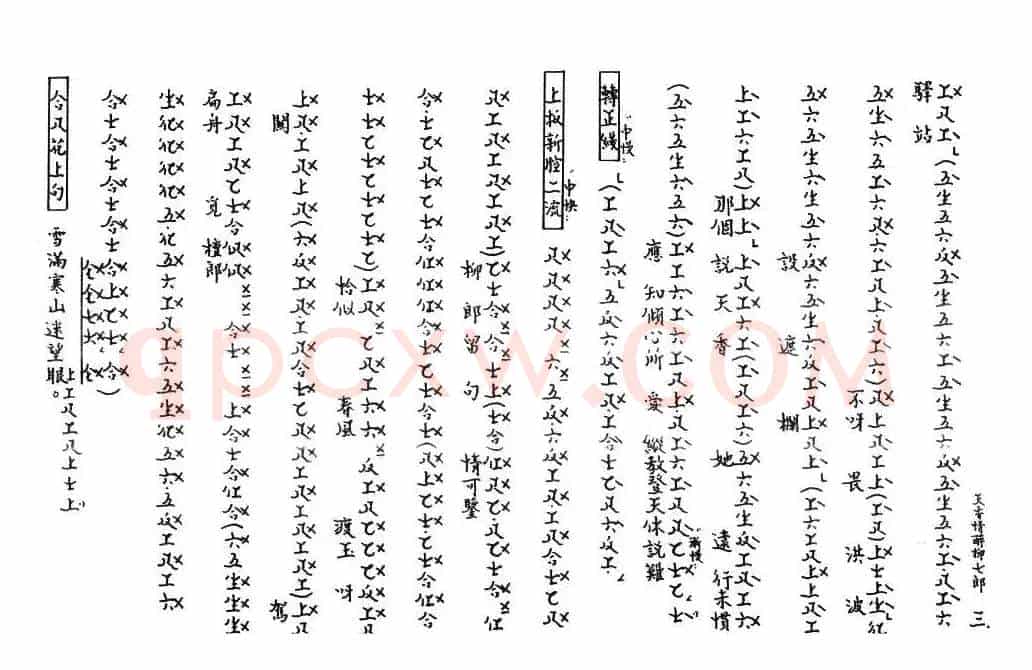 天香情醉柳七郎 三
工尺工(五生五六反五生五六工·五生五六反五生五六工·尺工六
驛站
五生六五工六尺六工尺上尺工六)尺上尺工上(工尺)上士上生伬
不呀 畏 洪 波
五六五生六生五六反六五生六反工尺上尺上(工六工尺上上尺工
設 遮 攔
上工六工尺)上上上尺工六工(工尺工六)五六五生反工尺工六
那個 説天香 她 遠 行未慣
(五六五生六五六)工工六工六工尺上尺工六工尺尺乙士乙士
應 知傾心所 愛 縱教登天休説難
漸慢
轉正綫
中慢
(工尺工六五反六反工尺工合士乙尺六反工
上板新腔二流
中快
尺尺尺尺六五反六反工尺工尺合士乙尺
尺工尺工尺工尺工)乙士合合士上(士合)仜尺乙尺乙士合仜
柳郎留句 情可鑒
合士乙尺士乙士合仜仜仜合士乙士合士(尺上乙士乙士合仜合
士士士乙士士乙士乙士)工尺乙尺工六六反工尺乙乙乙反工尺
恰似 春風 渡玉 呀
上尺工尺上尺(六反工尺工尺工尺合士乙尺尺工尺工尺工)上尺
關 駕
工尺工尺乙士合仩仩合士上合士合仜合(六五生生生
扁舟 覓 檀郎
生伬伬伬五伬五六工尺工六五生伬五六五反工尺工六
合士合士合士合士合上乙士合)
仝仝七七仝
合尺花上句
雪滿寒山迷望眼。
上工尺工尺上士上
qpcxw.com